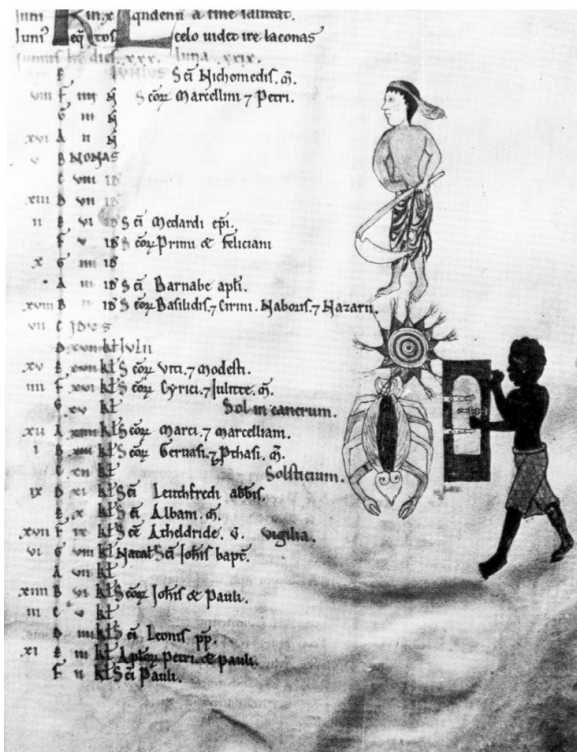 Iuni
Iuni⁹ Eq̃tos celo uidet ire laconas
dies xxx. luna xxix.
E S cĩ Nichomedis. m̃.
viii F iiii N̄ S coꝝ Marcellini ⁊ Petri.
G iii N̄
xvi A ii N̄
v B NONAS
C viii id
xiii D vii id
ii E vi id S cĩ Medardi ep̃i.
F v id S coꝝ Primi & Feliciani
x G iiii id
A iii id S cĩ Barnabe apłi.
xviii B ii id S coꝝ Basilidis, ⁊ Cirini. Naboris. ⁊ Nazarii.
vii C IDVS
D xviii kł
xv E xvii kł S coꝝ Viti. ⁊ Modesti.
iiii F xvi kł S coꝝ Cyrici. ⁊ Iulitte. m̃.
G xv kł Sol in cancrum.
xii A xiiii kł S coꝝ Marci. ⁊ marcelliani.
i B xiii kł S coꝝ Geruasi. ⁊ P̃thasi. m̃.
C xii kł Solsticium.
ix D xi kł S cĩ Leuthfredi abb̃is.
E x kł S cĩ Albani. m̃.
xvii F ix kł S cẽ Atheldride. v̄. Vigilia.
vi G viii kł Natał S cĩ Ioh̃is bapt̃.
A vii kł
xiiii B vi kł S coꝝ Ioh̃is & Pauli.
iii C v kł
D iiii kł S cĩ Leonis pp.
xi E iii kł Apłoꝝ Petri & Pauli.
F ii kł S cĩ Pauli.